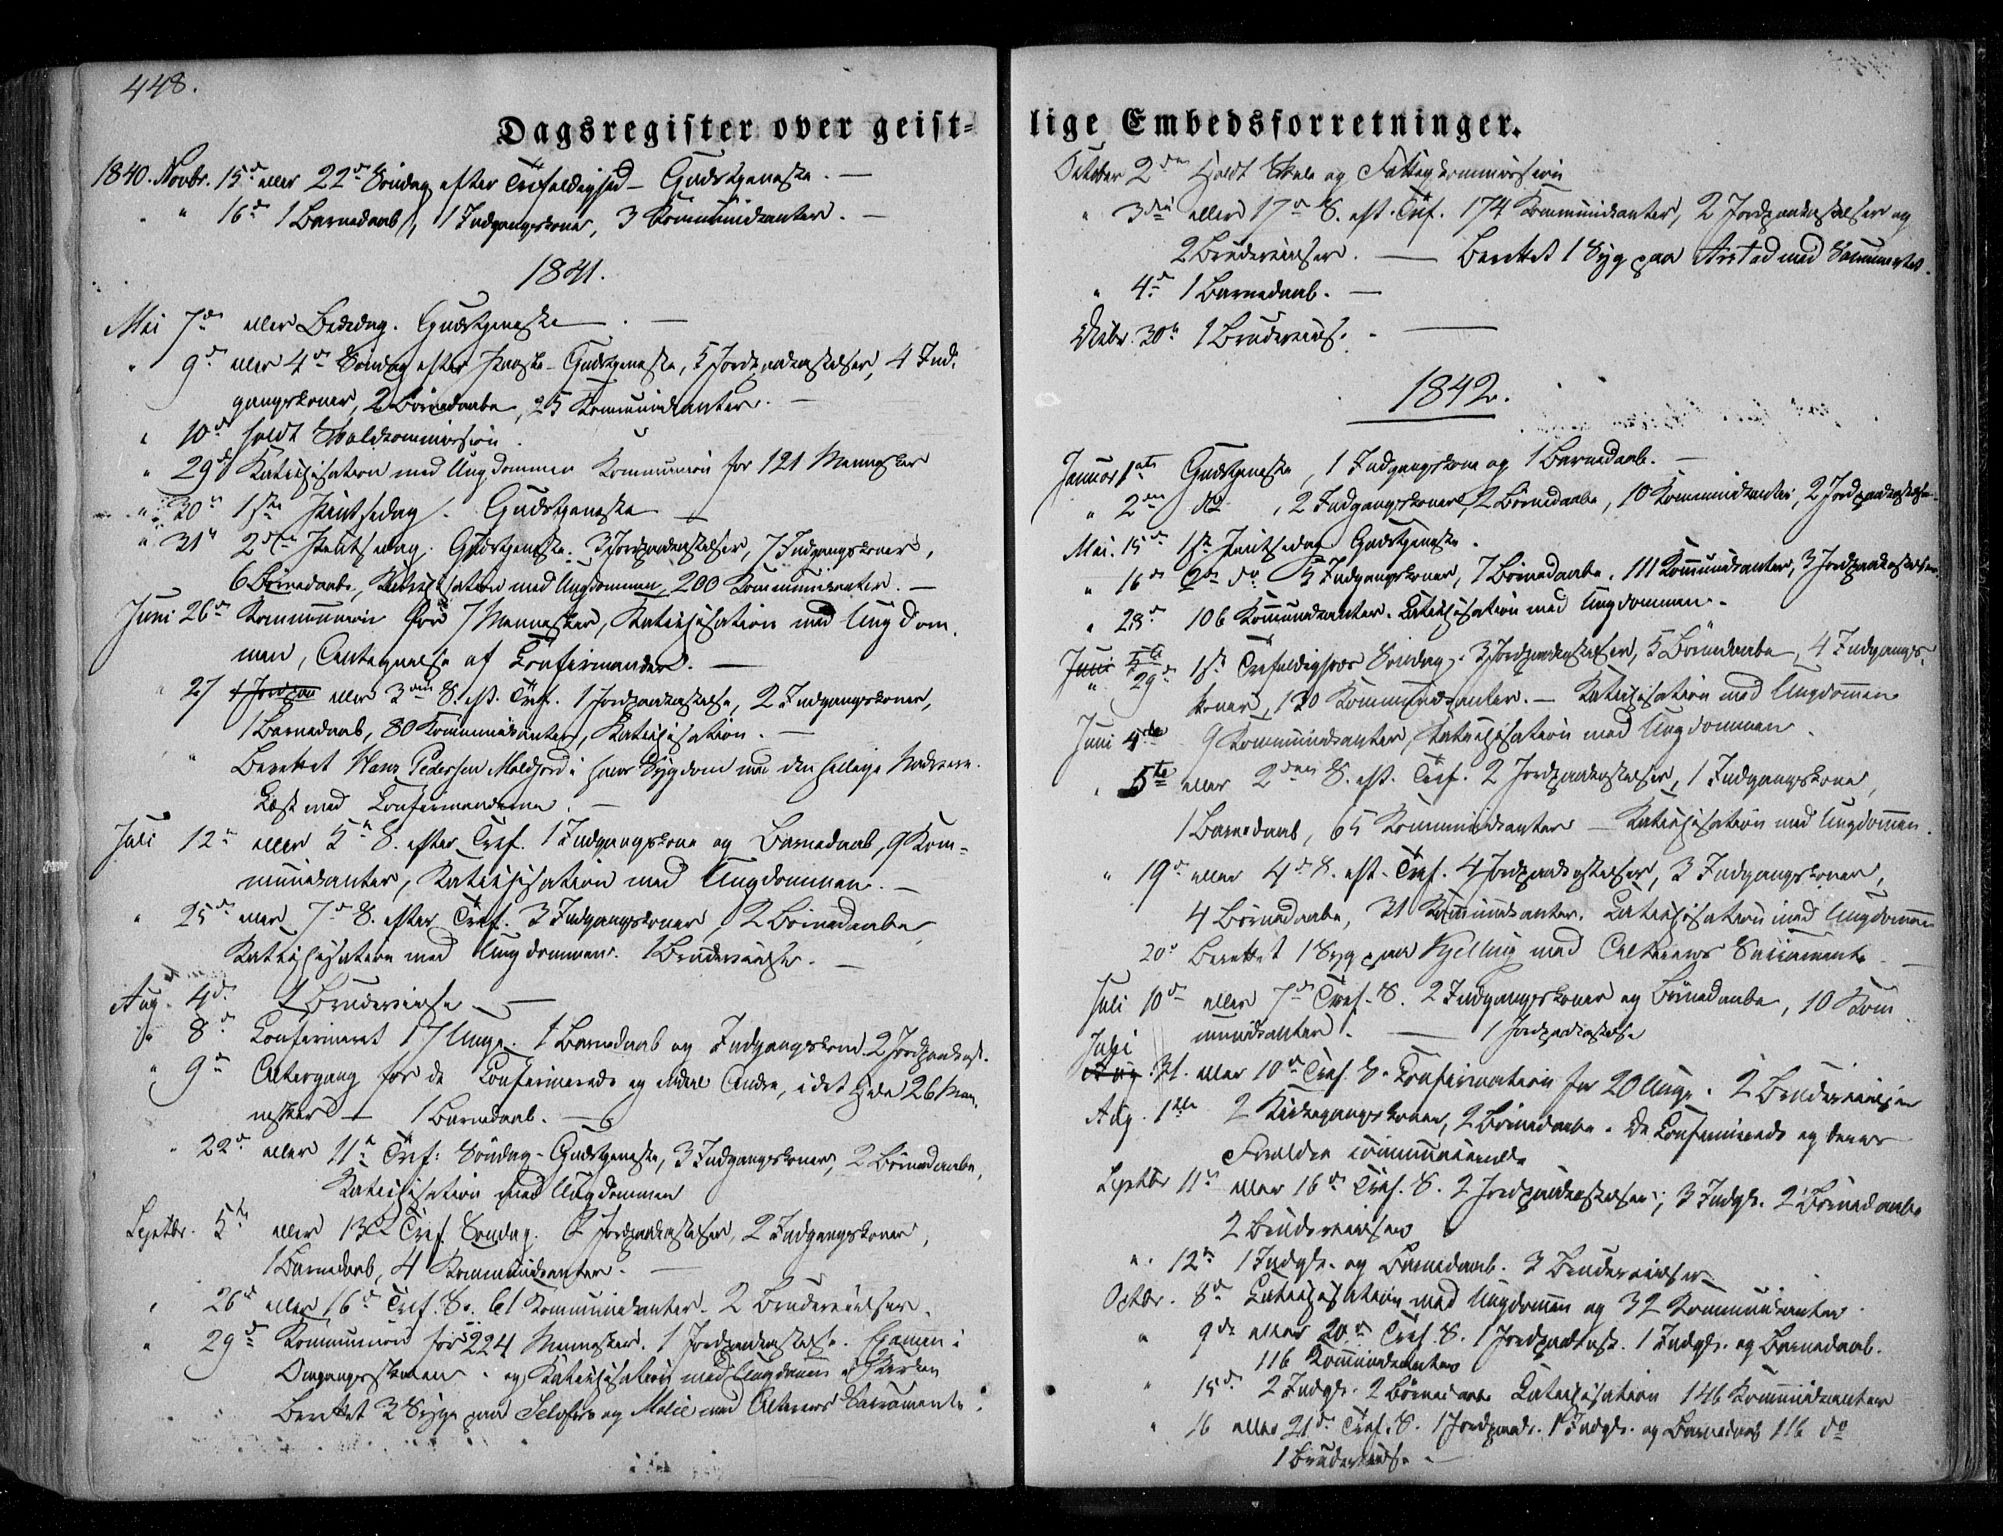 448.
Dagsregister over geist-
1840. Novbr. 15d eller 22d Søndag efter Trefoldighed - Gudstjeneste. -
" 16d 1 Barnedaab, 1 Indgangskone, 3 Kommunikanter. -
1841.
Mai 7de eller Bededag. Gudstjeneste. -
" 9d eller 4de Søndag efter Paaske - Gudstjeneste, 5 Jordpaakastelser, 4 Ind-
gangskoner, 2 Børnedaabe, 25 Kommunikanter. -
" 10d holdt Valdkommission.
" 29d Katechisation med Ungdommen Kommunion for 121 Mennesker
" 30te 1ste Pintsedag. Gudstjeneste -
" 31te 2den Pintsedag. Gudstjeneste. 3 Jordpaakastelser, 7 Indgangskoner,
6 Børnedaabe, Katechisation med Ungdommen, 200 Kommunikanter. -
Juni 26d Kommunion for 7 Mennesker, Katechisation med Ungdom-
men, Antegnelse af Confirmander. -
" 27 1 Jordpaa eller 3die S. eft. Tref. 1 Jordpaakastelse, 2 Indgangskoner,
1 Barnedaab, 80 Kommunikanter, Katechisation. -
" Berettet Hans Pedersen Moldjord i hans Sygdom med den hellige Nadvere.
Læst med Confirmanderne. -
Juli 12te eller 5te S. efter Tref. 1 Indgangskone og Barnedaab, 9 Kom-
munikanter, Katechisation med Ungdommen. -
" 25d eller 7d S. efter Tref. 3 Indgangskoner, 2 Børnedaabe,
Katechisation med Ungdommen. 1 Brudevielse. -
Aug. 4d. 1 Brudevielse -
" 8d Confirmeret 17 Unge. 1 Barnedaab og Indgangskone. 2 Jordpaakast.
" 9d Altergang for de Confirmerede og endeel Andre, i det Hele 26 Men-
nesker - 1 Barnedaab. -
" 22d eller 11te Tref: Søndag - Gudstjeneste, 3 Indgangskoner, 2 Børnedaabe,
Katechisation med Ungdommen
Septbr. 5te eller 13d Tref. Søndag. 2 Jordpaakastelser, 2 Indgangskoner,
1 Barnedaab, 4 Kommunikanter. -
" 26d eller 16d Tref. S. 61 Kommunikanter. 2 Brudevielser.
" 29d Kommunion for 224 Mennesker. 1 Jordpaakastelse. Examen i
Omgangsskolen og Katechisation med Ungdommen i Kirken
Berettet 3 Syge paa og med Alterens Sacramente.
lige Embedsforretninger.
October 2den Holdt Skole og Fattigkommission
" 3die eller 17de S. eft. Tref. 174 Kommunikanter, 2 Jordpaakastelser og
2 Brudevielser. - Berettet 1 Syg paa Arstad med Sacramentet.
" 4d 1 Barnedaab. -
30te 1 Brudevielse. -
1842.
Januar 1ste Gudstjeneste, 1 Indgangskone og 1 Barnedaab. -
" 2den do, 2 Indgangskoner, 2 Børnedaabe, 10 Kommunikanter, 2 Jordpaakastelser.
Mai. 15d 1ste Pintsedag Gudstjeneste.
" 16d 2d do 5 Indgangskoner, 7 Børnedaabe. 111 Kommunikanter, 3 Jordpaakastelser.
" 28d 106 Kommunikanter. Catechisation med Ungdommen.
Juni 5te
" 29d 1ste Trefoldigheds Søndag. 3 Jordpaakastelser, 5 Børnedaabe, 4 Indgangs-
koner, 130 Kommunikanter. - Katechisation med Ungdommen
Juni 4de 9 Kommunikanter, Katechisation med Ungdommen.
" 5te eller 2den S. eft. Tref. 2 Jordpaakastelser, 1 Indgangskone,
1 Barnedaab, 65 Kommunikanter - Katechisation med Ungdommen.
" 19d eller 4d S. eft. Tref. 4 Jordpaakastelser, 3 Indgangskoner,
4 Børnedaabe, 31 Kommunikanter. Catechisation med Ungdommen
20d Berettet 1 Syg paa Kjelling med Alterens Sacramente. -
Juli 10d eller 7d Tref. S. 2 Indgangskoner og Børnedaabe, 10 Kom-
munikanter. - 1 Jordpaakastelse
Juli
Aug. 31. eller 10d Tref. S. Confirmation for 20 Unge. 2 Brudevielser
Aug. 1ste 2 Kirkegangskoner, 2 Børnedaabe. De Confirmerede og deres
Forældre communicerede
Septbr 11te eller 16d Tref. S. 2 Jordpaakastelser, 3 Indgk. 2 Børnedaabe
2 Brudevielser
" 12te 1 Indgk. og Barnedaab. 3 Brudevielser
Octbr. 8d Catechisation med Ungdommen og 32 Kommunikanter.
" 9de eller 20d Tref. S. 1 Jordpaakast. 1 Indgk. og Barnedaab.
116 Kommunikanter
" 15d 2 Indgk. 2 Børnedaabe Catechisation 146 Kommunikanter
" 16 eller 21d Tref. S. 1 Jordpaak. 1 Indgk. og Barnedaab 116 do
1 Brudevielse -